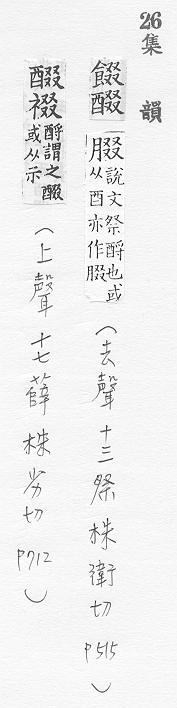 26 集韻
餟醊腏說文祭酹也或从酉亦作腏(去聲十三祭株衛切P515)
醊裰酹謂之醊或从示(上聲十七薛株劣切P712)